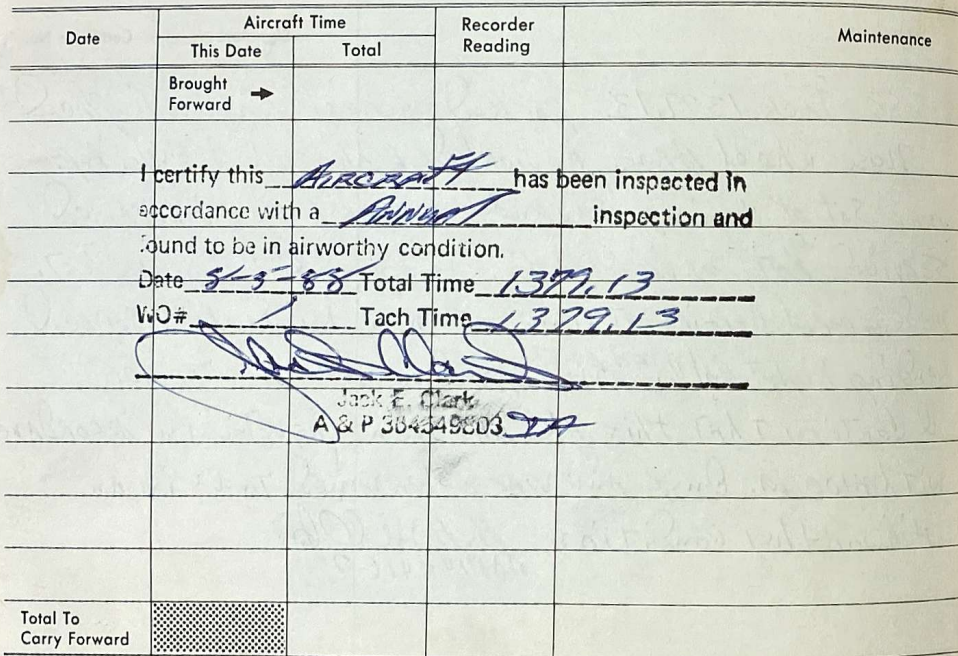 Date Aircraft Time Recorder Reading Maintenance
This Date Total
Brought Forward
I certify this AIRCRAFT has been inspected in
accordance with a ANNUAL inspection and
found to be in airworthy condition.
Date 8-5-88 Total Time 1379.13
WO# / Tach Time 1379.13
Jack E. Clark
A & P 384549803 IA
Total To Carry Forward